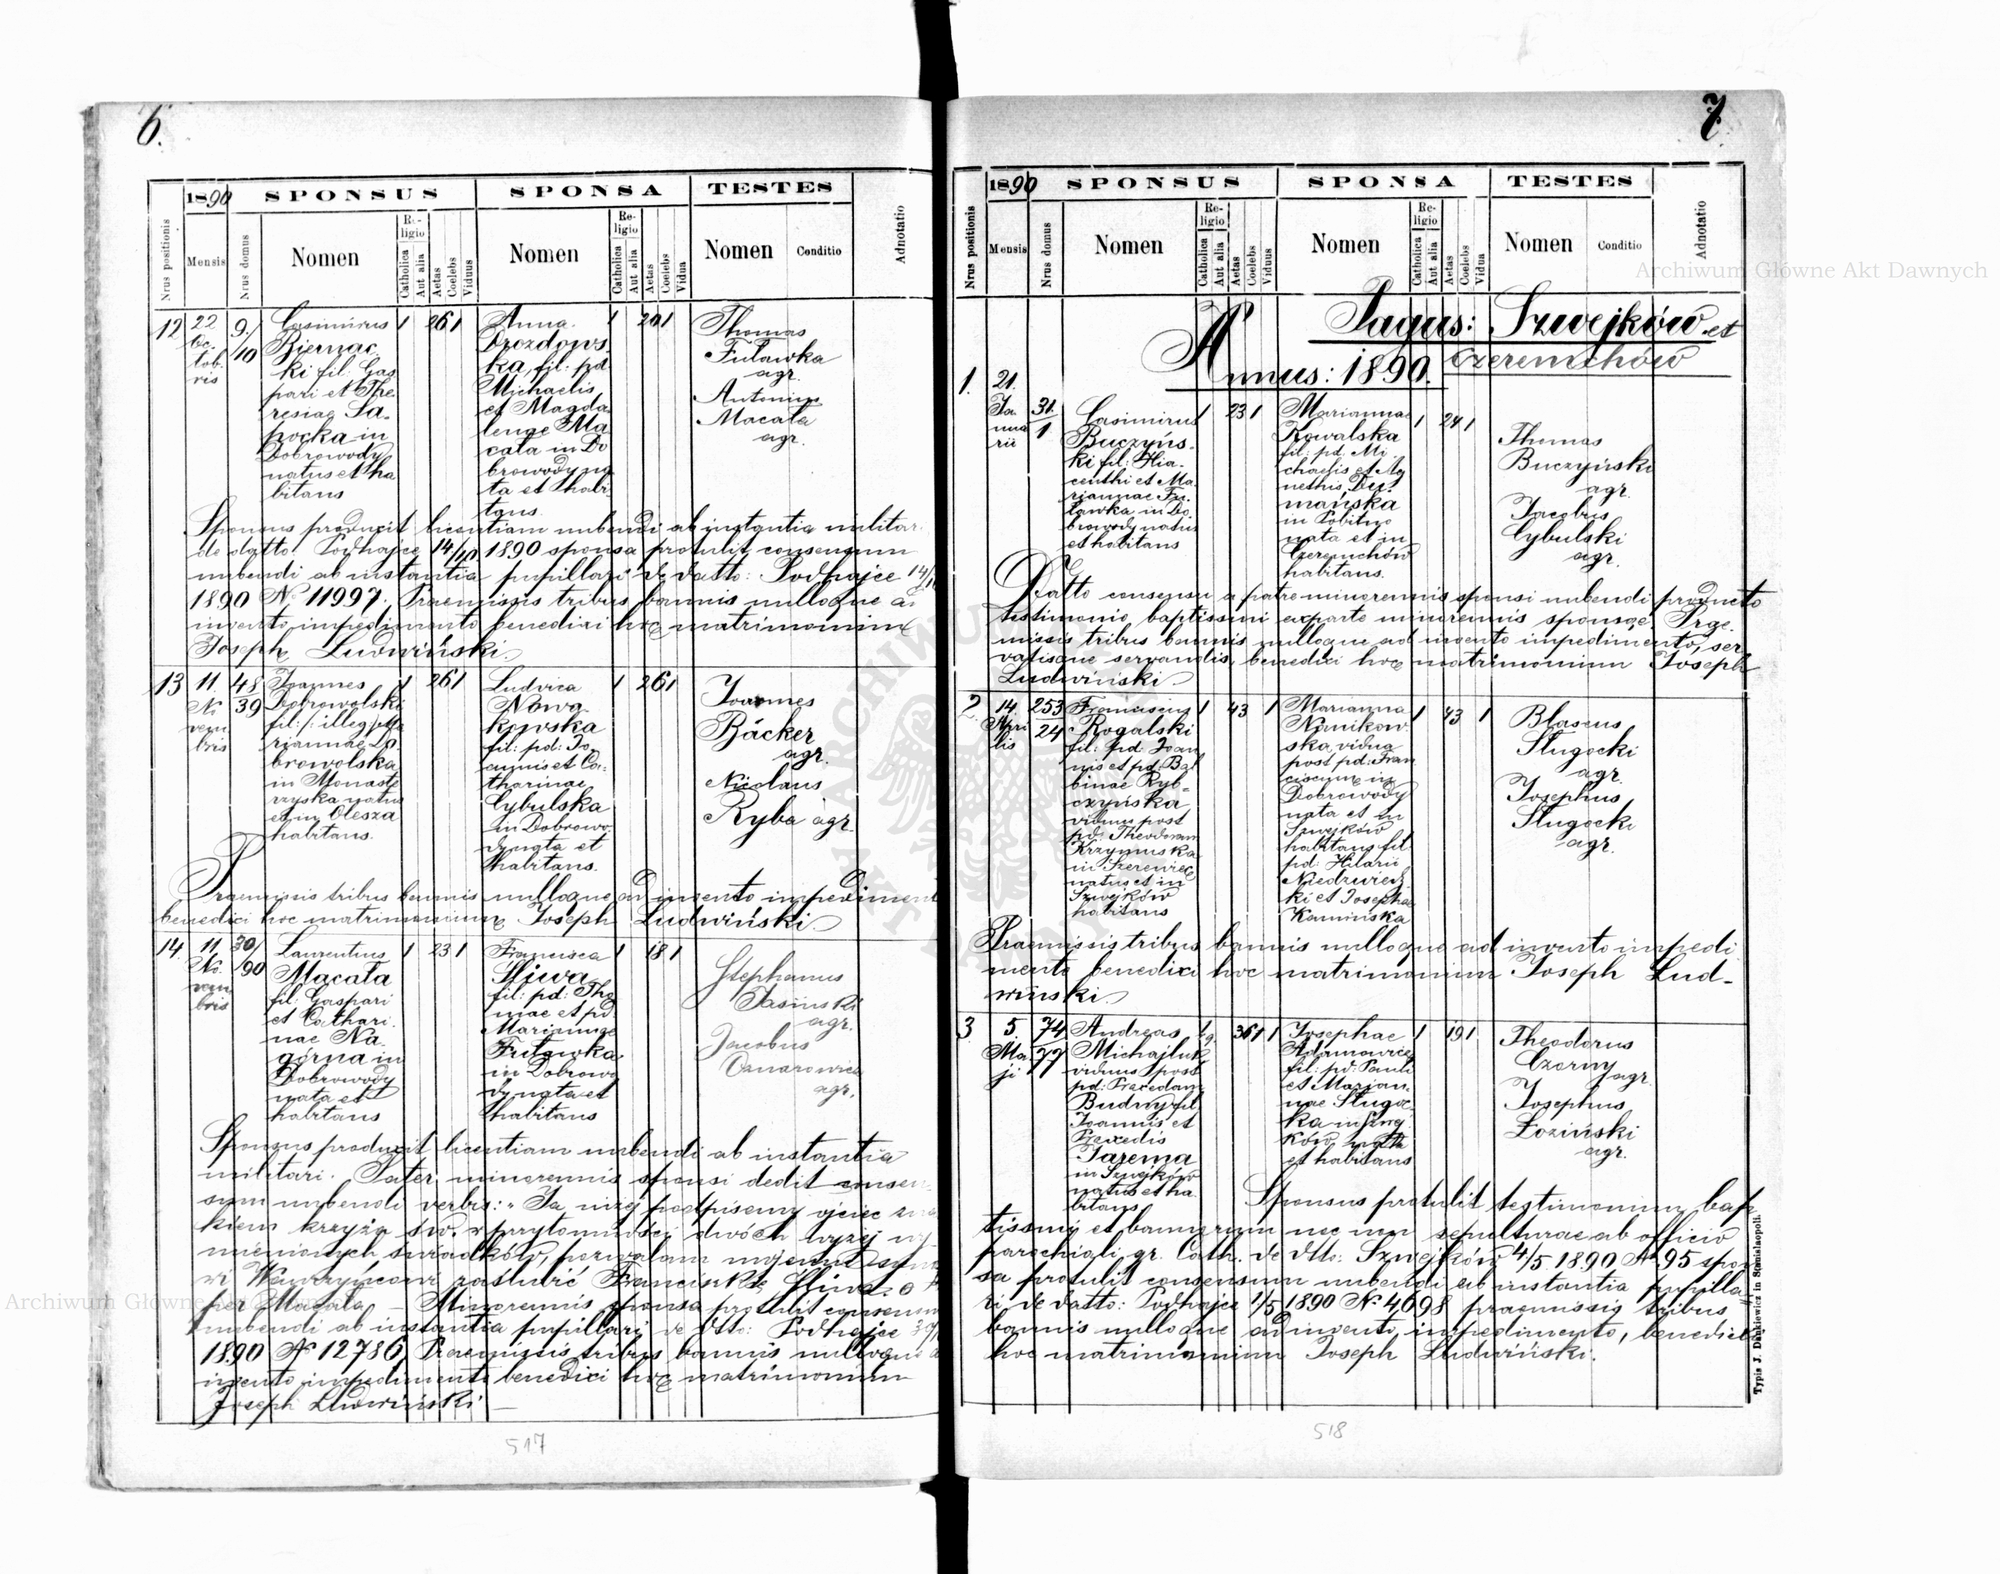 6.
1890 SPONSUS SPONSA TESTES
Nrus positionis
Mensis
Nrus domus
Nomen
Religio
Catholica
Aut alia
Aetas
Coelebs
Viduus
Nomen
Religio
Catholica
Aut alia
Aetas
Coelebs
Vidua
Nomen
Conditio
Adnotatio
12
22
Oc.
tob.
ris
9/
10
Casimirus
Biernac
ki fil. Gas
pari et The
resiae Sa
pocka in
Dobrowody
natus et ha
bitans
1 26 1
Anna
Drozdows
ka, fil: pd
Michaelis
et Magda
lenae Ma
cała in Do
browody na
ta et habi
tans
1 20 1
Thomas
Futawka
agr.
Antonius
Macała
agr.
Sponsus produxit licentiam nubendi ab instantia militar.
de datto Podhajce 14/10 1890 sponsa protulit consensum
nubendi ab instantia pupillari de datto: Podhajce 14/10
1890 No 11997. Praemissis tribus bannis nulloque ad
invento impedimento benedixi hoc matrimonium
Joseph Ludwiński.
13
11
No
vem
bris
48
39
Joannes
Dobrowolski
fil: illeg: Ma
riannae Do
browolska
in Monaste
rzyska natus
et in Olesza
habitans.
1 26 1
Ludvica
Nowa
kowska
fil: pd: Jo
annis et Ca
tharinae
Cybulska
in Dobrowo
dy nata et
habitans.
1 26 1
Joannes
Bäcker
agr.
Nicolaus
Ryba agr.
Praemissis tribus bannis nulloque ad invento impediment
benedixi hoc matrimonium Joseph Ludwiński.
14
11
No.
vem
bris
30/
90
Laurentius
Macała
fil: Gaspari
et Cathari
nae Na
górna in
Dobrowody
nata et
habitans
1 23 1
Francisca
Śliwa
fil: pd: Tho
mae et pd:
Mariannae
Futawka
in Dobrowo
dy nata et
habitans
1 18 1
Stephanus
Jasiński
agr.
Jacobus
agr.
Sponsus produxit licentiam nubendi ab instantia
militari. Pater minorennis sponsi dedit consen
sum nubendi verbis: "Ja niżej podpisany ojciec zna
kiem krzyża św. w przytomności dwóch wyżej wy
mienionych świadków, pozwalam mojemu syno
wi Wawrzyńcowi zaślubić Franciszkę Śliwa.
per Macała – Minorennis sponsa protulit consensum
nubendi ab instantia pupillari de dtto: Podhajce
1890 No 12786 Praemissis tribus bannis nulloque ad
invento impedimento benedixi hoc matrimonium
Joseph Ludwiński –
517
7.
1890 SPONSUS SPONSA TESTES
Nrus positionis
Mensis
Nrus domus
Nomen
Religio
Catholica
Aut alia
Aetas
Coelebs
Viduus
Nomen
Religio
Catholica
Aut alia
Aetas
Coelebs
Vidua
Nomen
Conditio
Adnotatio
Pagus: Szwejków et
Czeremchów
Annus: 1890.
1.
21.
Ja
nua
rii
31.
1
Casimirus
Buczyńs
ki fil: Hia
centhi et Ma
riannae Fu
tawka in Do
browody natus
et habitans
1 23 1
Marianna
Kowalska
fil: pd. Mi
chaelis et Ag
nethis Du
mańska
in Dobitno
nata et in
Czeremchów
habitans.
1 24 1
Thomas
Buczyński
agr.
Jacobus
Cybulski
agr.
Datto consensu a patre minorennis sponsi nubendi producto
testimonio baptissmi ex parte minorennis sponsae. Prae
missis tribus bannis nulloque ad invento impedimento, ser
vatisque servandis, benedixi hoc matrimonium Joseph
Ludwiński.
2
14.
Apri
lis
253
24
Franciscus
Rogalski
fil: pd: Joan
nis et pd: Bal
binae Ryb
czyńska
viduus post
pd: Theodoram
Krzymuska
in Szereniec
natus et in
Szwejków
habitans
1 43 1
Marianna
Nowikow
ska, vidua
post pd: Fran
ciscum in
Dobrowody
nata et in
Szwejków
habitans fil
pd: Hilarii
Niedzwiedz
ki et Josephae
Kamińska
1 43 1
Blasius
Sługocki
agr.
Josephus
Sługocki
agr.
Praemissis tribus bannis nulloque ad invento impedi
mento benedixi hoc matrimonium Joseph Lud-
wiński.
3
5
Ma
ji
74
77
Andreas
Michajluk
viduus post
pd: Praxedam
Budny fil
Joannis et
Praxedis
Jarema
in Szwejków
natus et ha
bitans
36 1
Josephae
Adamowicz
fil: pd: Pauli
et Marian
nae Sługoc
ka in Szwej
ków nata
et habitans
1 19 1
Theodorus
Czorny
agr.
Josephus
Łoziński
agr.
Sponsus protulit testimonium bap
tissmi et bannorum nec non sepulturae ab officio
parochiali gr. Cath. de dtto: Szwejków 4/5 1890 No 95 spon
sa protulit consensum nubendi ab instantia pupilla
ri de datto: Podhajce 1/5 1890 No 4698 praemissis tribus
bannis nulloque adinvento impedimento, benedixi
hoc matrimonium Joseph Ludwiński.
Typis J. Dankiewicz in Stanislaopoli.
518
Archiwum Główne Akt Dawnych
Archiwum Główne Akt Dawnych